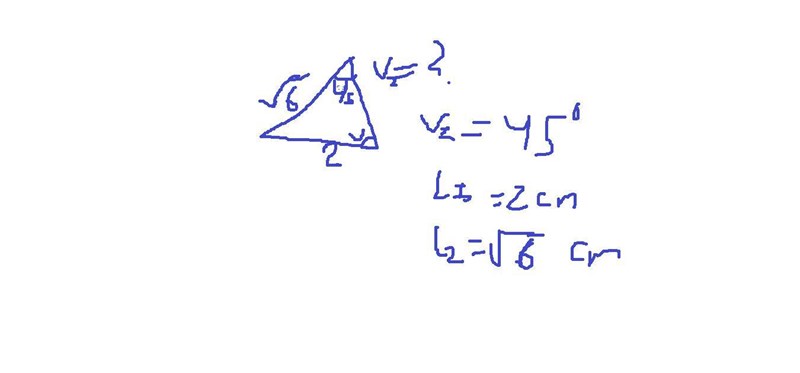 √6
V₁
V₁ = ?
V
2
V₂ = 45°
L₁ = 2 cm
L₂ = √6 cm